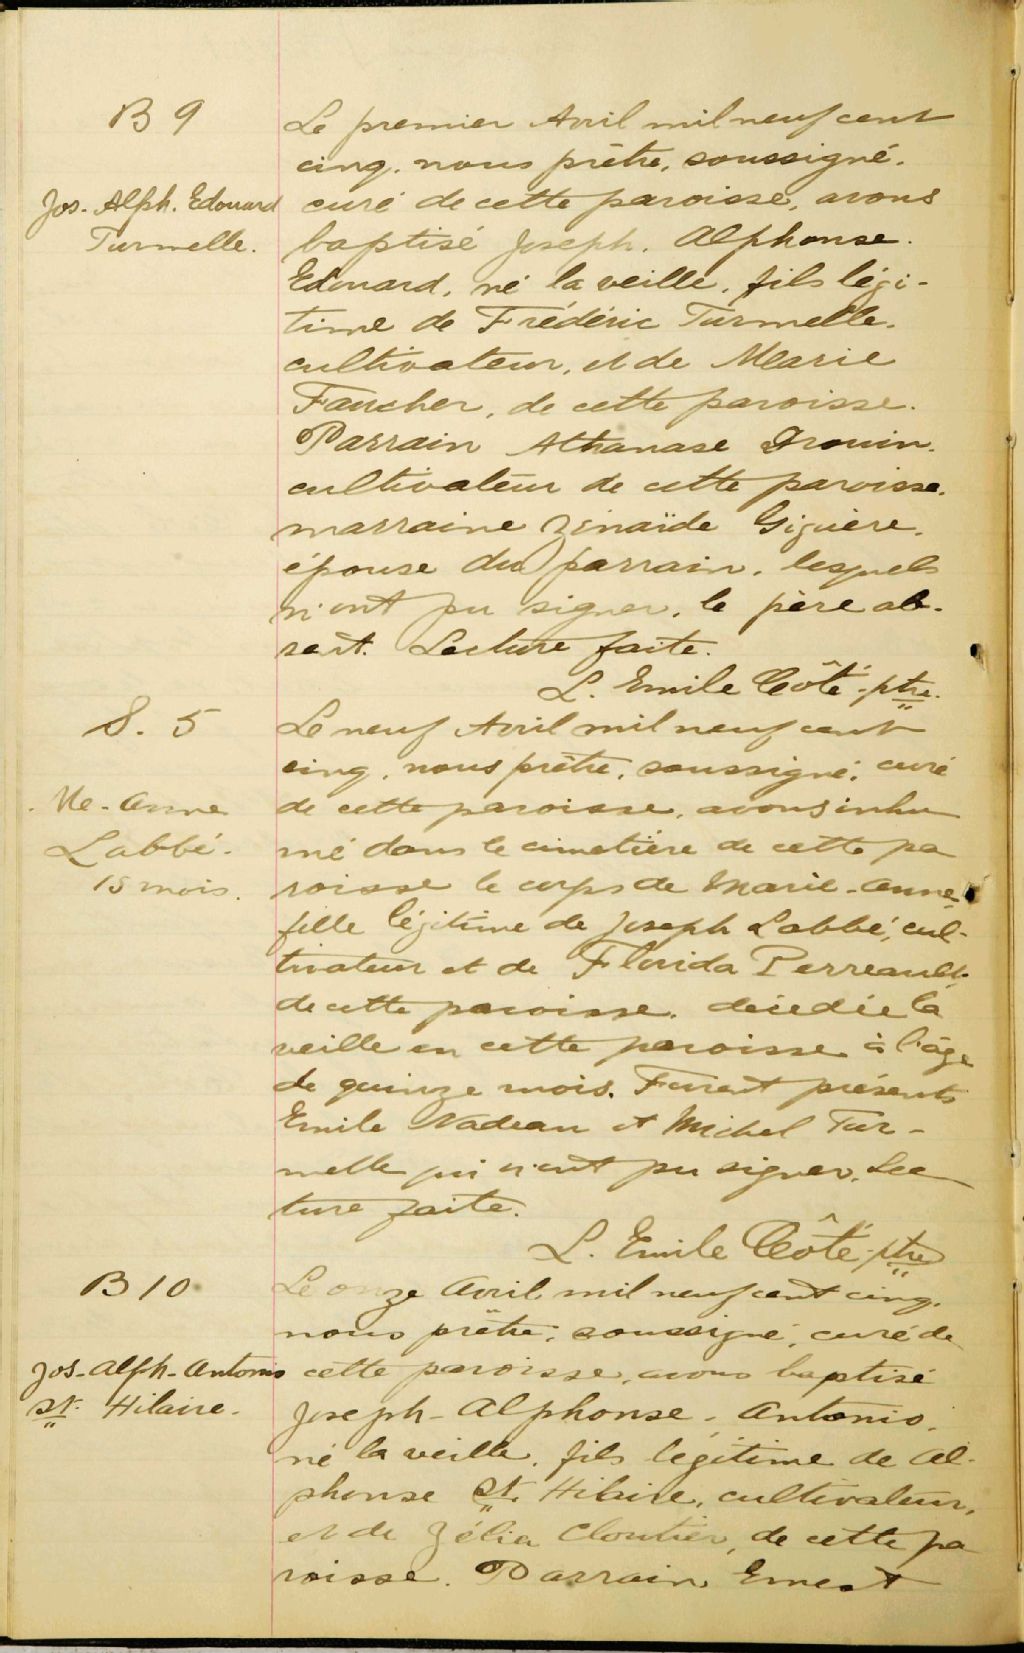 B 9
Jos. Alph. Edouard
Turmelle.
Le premier Avril mil neuf cent
cinq, nous prêtre, soussigné,
curé de cette paroisse, avons
baptisé Joseph, Alphonse.
Edouard, né la veille, fils légi-
time de Frédéric Turmelle,
cultivateur, et de Marie
Faucher, de cette paroisse.
Parrain Athanase Drouin,
cultivateur de cette paroisse,
marraine Zénaïde Giguère,
épouse du parrain, lesquels
n'ont pu signer, le père ab-
sent. Lecture faite.
L. Emile Côté, ptre.
S. 5
Me-Anne
Labbé.
15 mois.
Le neuf Avril mil neuf cent
cinq, nous prêtre, soussigné, curé
de cette paroisse, avons inhu
mé dans le cimetière de cette pa
roisse le corps de Marie-Anne,
fille légitime de Joseph Labbé, cul-
tivateur et de Florida Perreault,
de cette paroisse, décédée la
veille en cette paroisse à l'âge
de quinze mois. Furent présents
Emile Nadeau et Michel Tur-
melle qui n'ont pu signer. Lec
ture faite.
L. Emile Côté, ptre
B 10
Jos-Alph-Antonio
St. Hilaire.
Le onze Avril mil neuf cent cinq,
nous prêtre, soussigné, curé de
cette paroisse, avons baptisé
Joseph-Alphonse, Antonio,
né la veille, fils légitime de Al-
phonse St. Hilaire, cultivateur,
et de Zélia Cloutier, de cette pa
roisse. Parrain Ernest